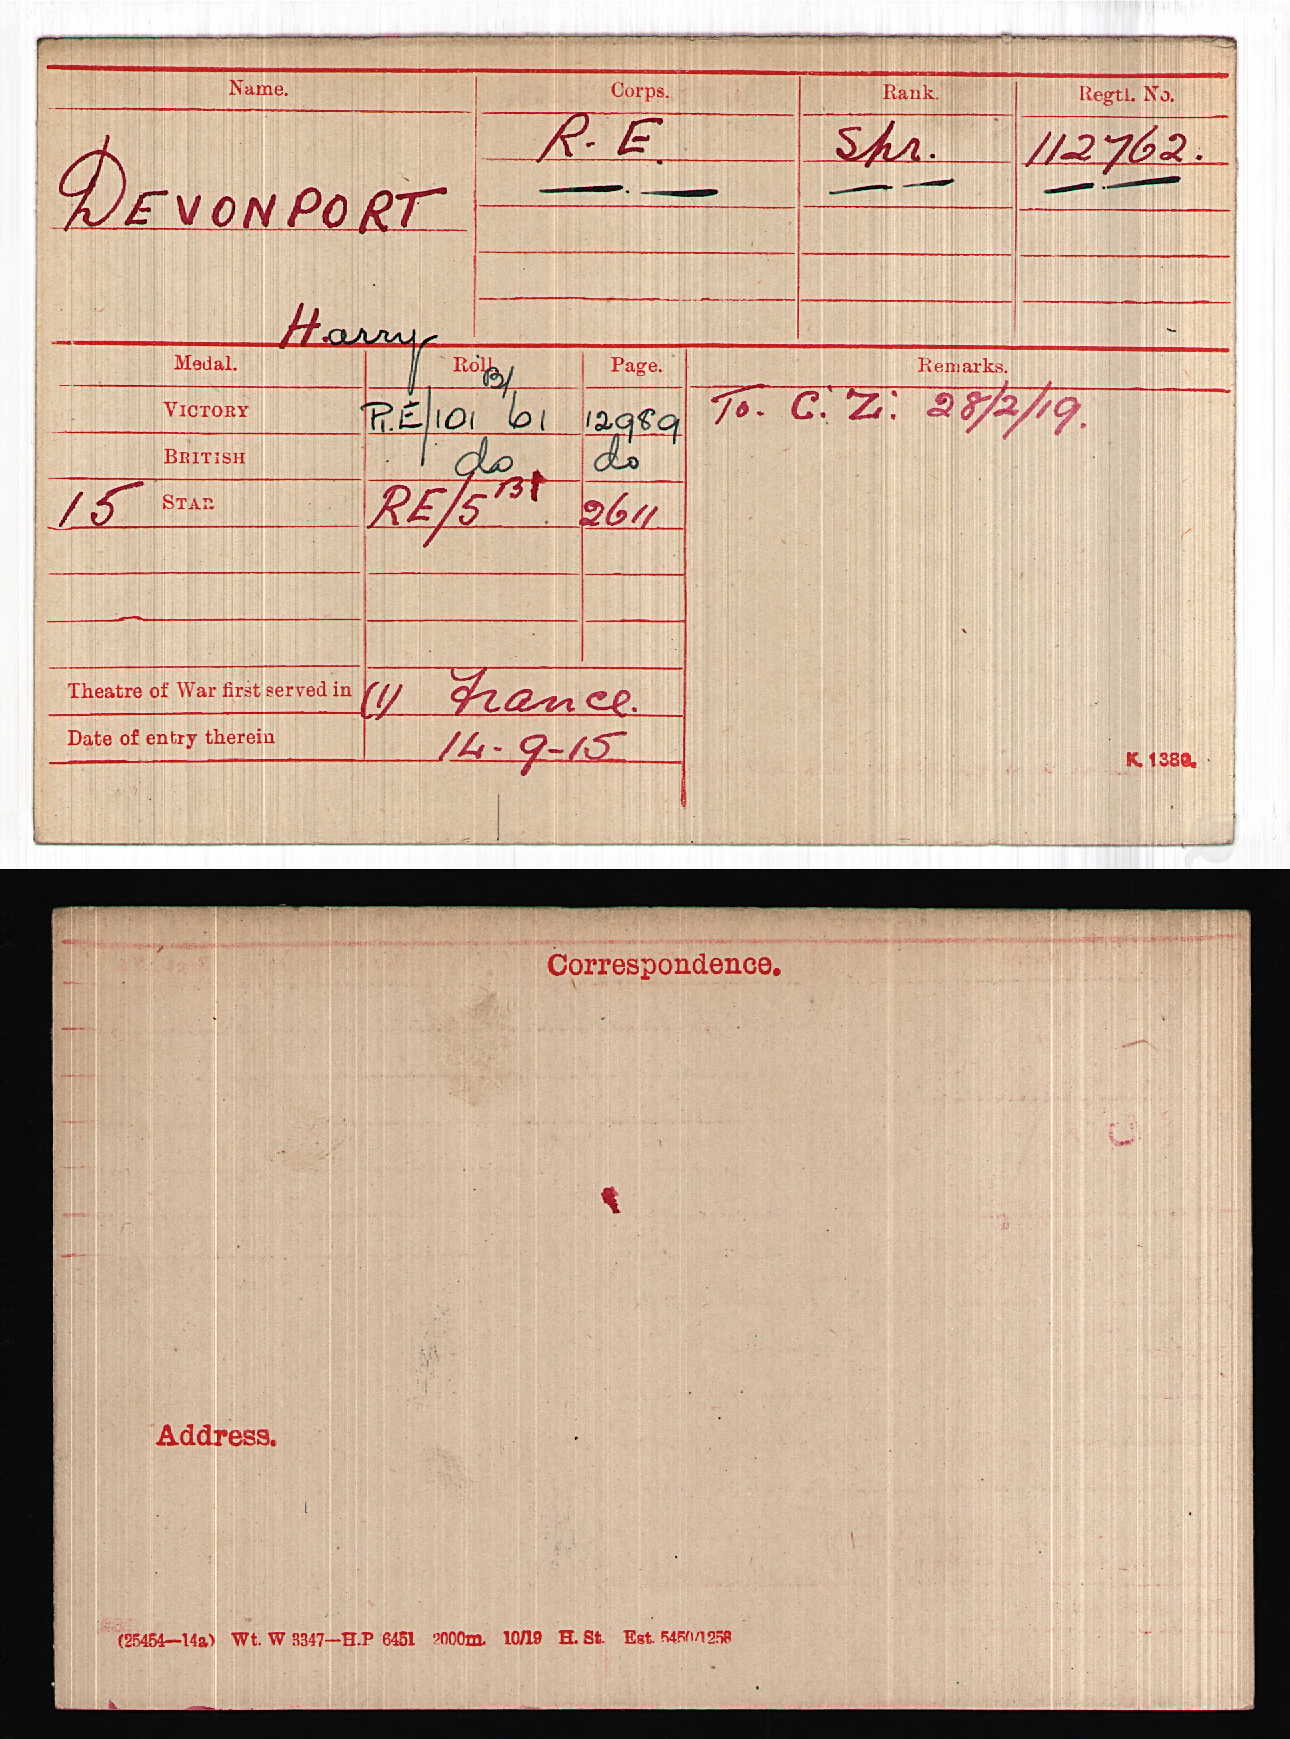 Name. Corps. Rank. Regtl. No.
DEVONPORT R.E. Spr. 112762.
Harry
Medal. Roll. Page. Remarks.
VICTORY R.E/101 B/61 12989 To. C. Z. 28/2/19.
BRITISH do do
15 STAR RE/5 B1 2611
Theatre of War first served in (1) France.
Date of entry therein 14-9-15
K. 1380.
Correspondence.
Address.
(25454—14a) Wt. W 3347—H.P 6451 2000m. 10/19 H. St. Est. 5450/1258